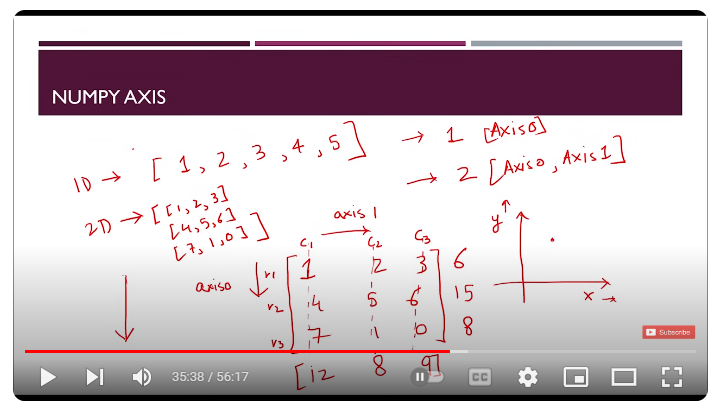 NUMPY AXIS
1D → [1, 2, 3, 4, 5] → 1 [Axis0]
2D → [[1, 2, 3] → 2 [Axis0, Axis1]
[4, 5, 6]
[7, 1, 0]]
axis 1
y ↑
C1 C2 C3
axis0 r1 [1 2 3 6
r2 4 5 6 15
r3 7 1 0] 8
x →
[12 8 9]
Subscribe
35:38 / 56:17
CC